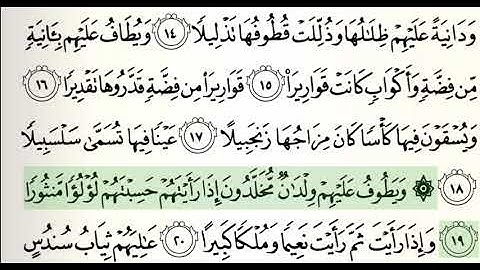 وَدَانِيَةً عَلَيْهِمْ ظِلَٰلُهَا وَذُلِّلَتْ قُطُوفُهَا تَذْلِيلًا ١٤ وَيُطَافُ عَلَيْهِم بِـَٔانِيَةٍ
مِّن فِضَّةٍ وَأَكْوَابٍ كَانَتْ قَوَارِيرَا۠ ١٥ قَوَارِيرَا۟ مِن فِضَّةٍ قَدَّرُوهَا تَقْدِيرًا ١٦
وَيُسْقَوْنَ فِيهَا كَأْسًا كَانَ مِزَاجُهَا زَنجَبِيلًا ١٧ عَيْنًا فِيهَا تُسَمَّىٰ سَلْسَبِيلًا
١٨ ۞ وَيَطُوفُ عَلَيْهِمْ وِلْدَٰنٌ مُّخَلَّدُونَ إِذَا رَأَيْتَهُمْ حَسِبْتَهُمْ لُؤْلُؤًا مَّنثُورًا
١٩ وَإِذَا رَأَيْتَ ثَمَّ رَأَيْتَ نَعِيمًا وَمُلْكًا كَبِيرًا ٢٠ عَٰلِيَهُمْ ثِيَابُ سُندُسٍ